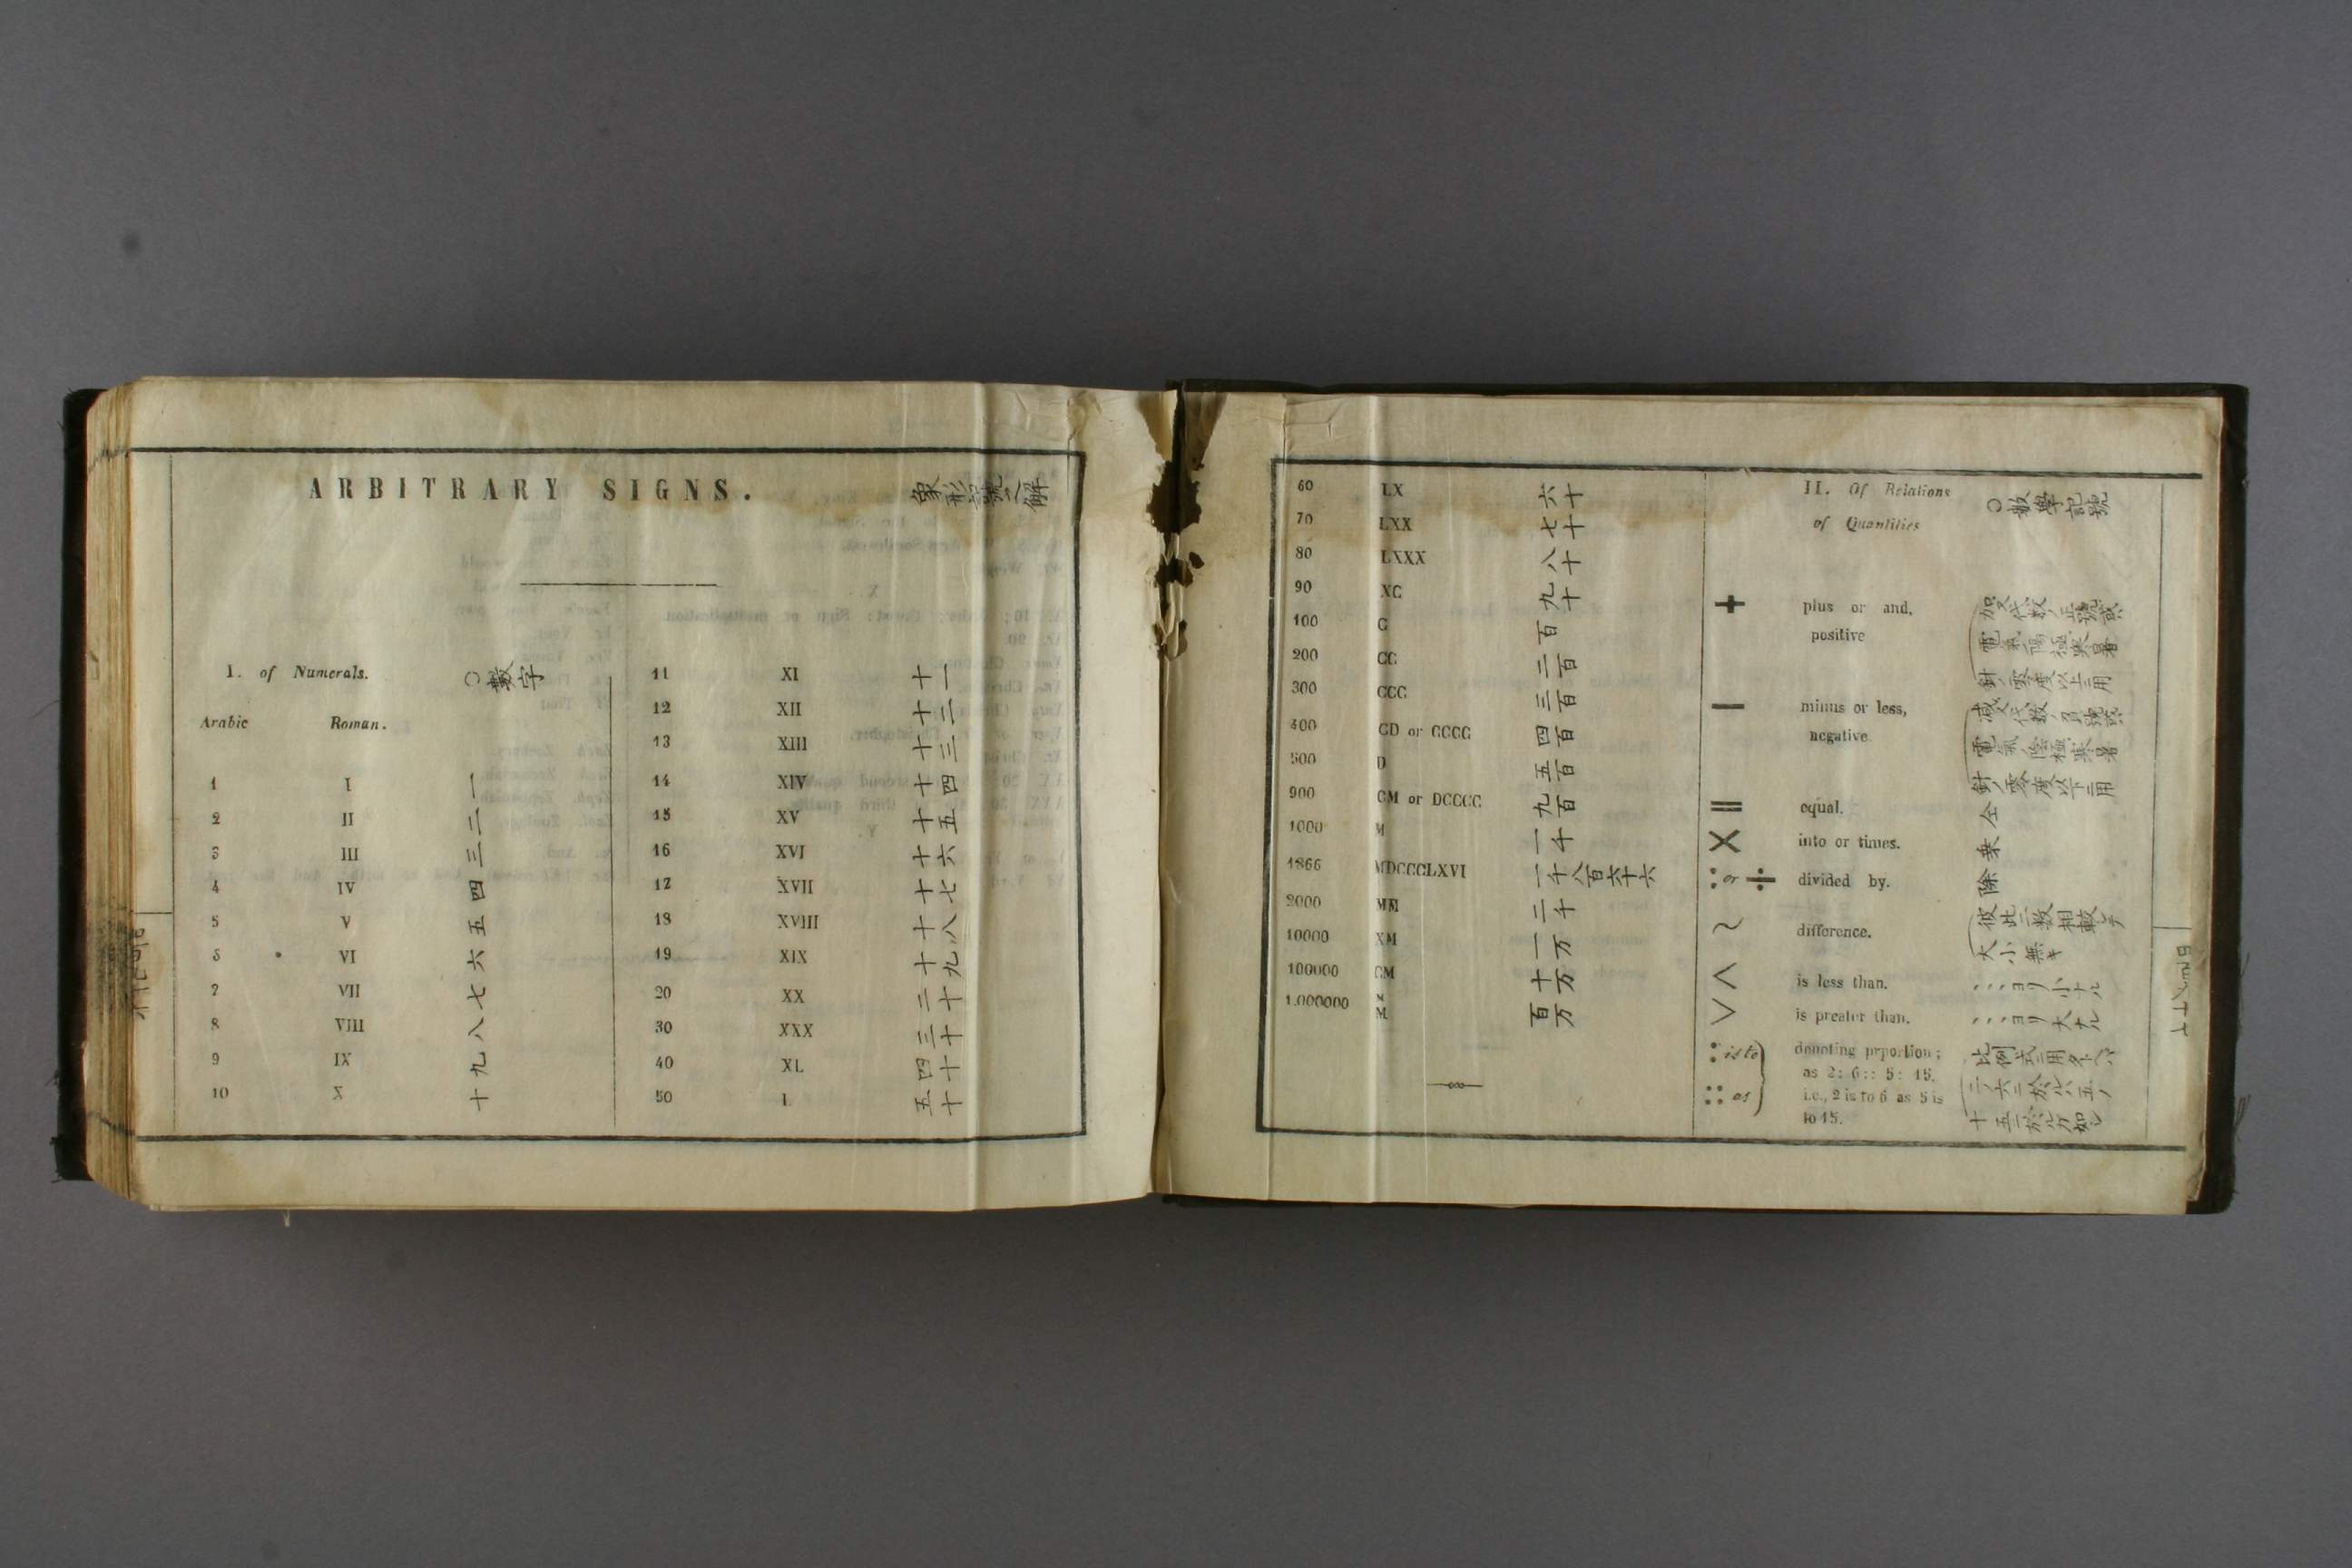 ARBITRARY SIGNS.
象形記號之解
I. of Numerals. ○數字
Arabic Roman.
1 I 一
2 II 二
3 III 三
4 IV 四
5 V 五
6 VI 六
7 VII 七
8 VIII 八
9 IX 九
10 X 十
11 XI 十一
12 XII 十二
13 XIII 十三
14 XIV 十四
15 XV 十五
16 XVI 十六
17 XVII 十七
18 XVIII 十八
19 XIX 十九
20 XX 二十
30 XXX 三十
40 XL 四十
50 L 五十
60 LX 六十
70 LXX 七十
80 LXXX 八十
90 XC 九十
100 C 百
200 CC 二百
300 CCC 三百
400 CD or CCCC 四百
500 D 五百
900 CM or DCCCC 九百
1000 M 一千
1866 MDCCCLXVI 一千八百六十六
2000 MM 二千
10000 XM 一万
100000 CM 十万
1.000000 M M 百万
II. Of Relations ○数學記號
of Quantities
+ plus or and,
positive
電氣陽極寒暑
針ノ零度以上ニ用
— minus or less,
negative
電氣陰極寒暑
針ノ零度以下ニ用
= equal. 仝
× into or times. 乗
: or ÷ divided by. 除
~ difference. 彼此二数相較シテ
大小無キ
< is less than. ...ヨリ小ナル
> is preater than. ...ヨリ大ナル
: is to denoting prportion;
as 2: 6:: 5: 15.
:: as i.e., 2 is to 6 as 5 is
to 15.